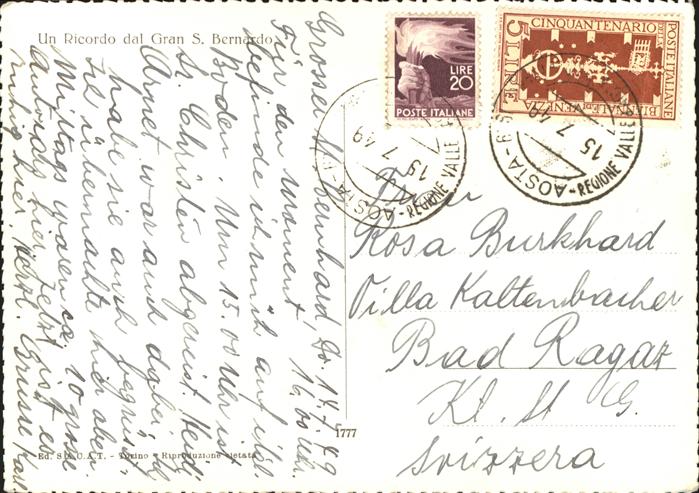 Un Ricordo dal Gran S. Bernardo
Grosser St. Bernhard, Do. 14.7.49
16.00 Uhr.
Für den moment
befinde ich mich auf ital.
Boden. Um 15.00 Uhr ist
Dr. Christen abgereist. Heidi
Arnet war auch dabei, ich
habe sie auch begrüsst.
Sie übernachte hier oben
Mittags waren ca. 10 grosse
Autocars hier, jetzt ist es
ruhig hier, herzl. Grüsse
LIRE
20
POSTE ITALIANE
CINQUANTENARIO
5 LIRE
BIENNALE
POSTE ITALIANE
AOSTA
REGIONE VALLE
15 7 49
AOSTA
REGIONE VALLE
15 7 49
Frau
Rosa Burkhard
Villa Kaltenbacher
Bad Ragaz
Kt. St. G.
Svizzera
1777
Ed. S.A.C.A.T. - Torino - Riproduzione vietata